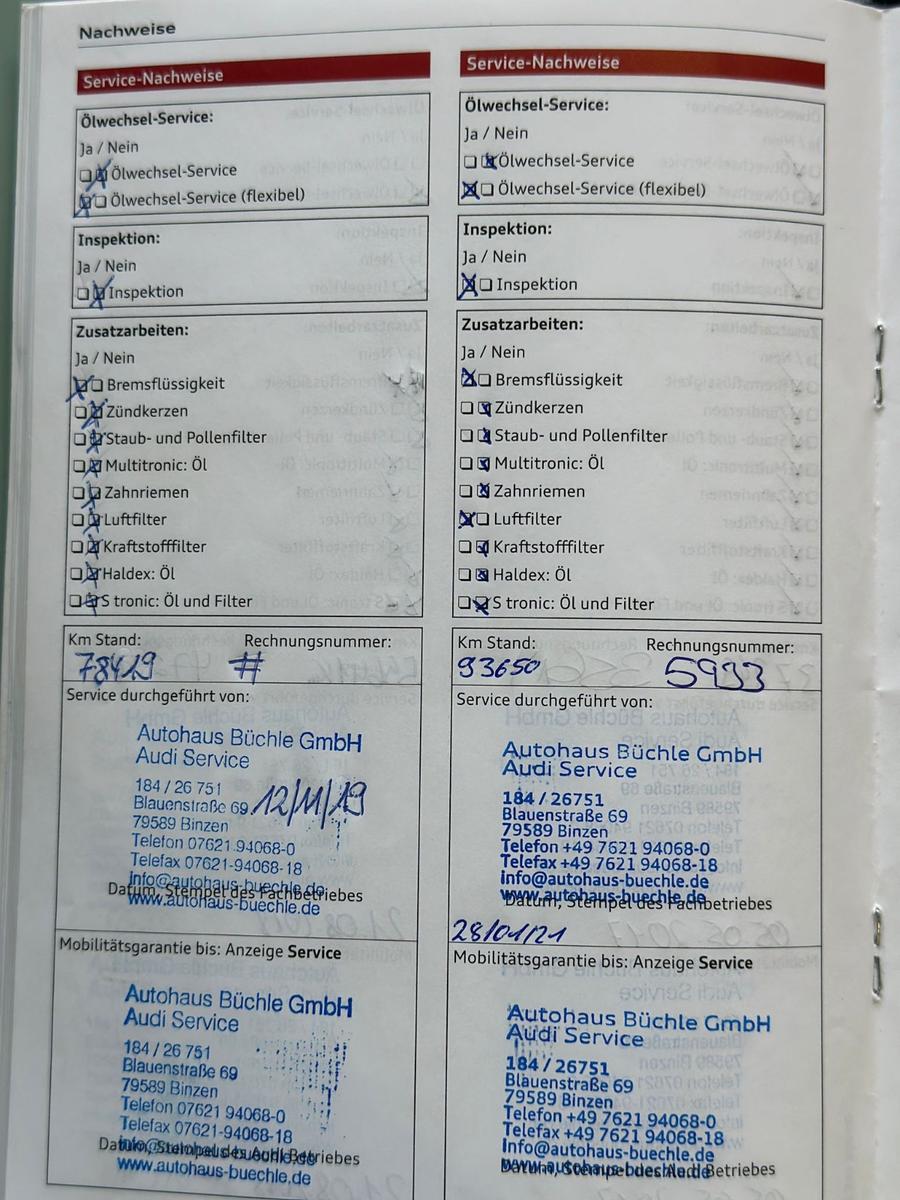 Nachweise
Service-Nachweise
Ölwechsel-Service:
Ja / Nein
Ölwechsel-Service
Ölwechsel-Service (flexibel)
Inspektion:
Ja / Nein
Inspektion
Zusatzarbeiten:
Ja / Nein
Bremsflüssigkeit
Zündkerzen
Staub- und Pollenfilter
Multitronic: Öl
Zahnriemen
Luftfilter
Kraftstofffilter
Haldex: Öl
S tronic: Öl und Filter
Km Stand: Rechnungsnummer:
78419 #
Service durchgeführt von:
Autohaus Büchle GmbH
Audi Service
184 / 26 751
Blauenstraße 69 12/11/19
79589 Binzen
Telefon 07621 94068-0
Telefax 07621-94068-18
info@autohaus-buechle.de
Datum, Stempel des Fachbetriebes
www.autohaus-buechle.de
Mobilitätsgarantie bis: Anzeige Service
Autohaus Büchle GmbH
Audi Service
184 / 26 751
Blauenstraße 69
79589 Binzen
Telefon 07621 94068-0
Telefax 07621-94068-18
info@autohaus-buechle.de
Datum, Stempel des Audi Betriebes
www.autohaus-buechle.de
Service-Nachweise
Ölwechsel-Service:
Ja / Nein
Ölwechsel-Service
Ölwechsel-Service (flexibel)
Inspektion:
Ja / Nein
Inspektion
Zusatzarbeiten:
Ja / Nein
Bremsflüssigkeit
Zündkerzen
Staub- und Pollenfilter
Multitronic: Öl
Zahnriemen
Luftfilter
Kraftstofffilter
Haldex: Öl
S tronic: Öl und Filter
Km Stand: Rechnungsnummer:
93650 5933
Service durchgeführt von:
Autohaus Büchle GmbH
Audi Service
184 / 26751
Blauenstraße 69
79589 Binzen
Telefon +49 7621 94068-0
Telefax +49 7621 94068-18
info@autohaus-buechle.de
www.autohaus-buechle.de
Datum, Stempel des Fachbetriebes
28/01/21
Mobilitätsgarantie bis: Anzeige Service
Autohaus Büchle GmbH
Audi Service
184 / 26751
Blauenstraße 69
79589 Binzen
Telefon +49 7621 94068-0
Telefax +49 7621 94068-18
Info@autohaus-buechle.de
www.autohaus-buechle.de
Datum, Stempel des Audi Betriebes